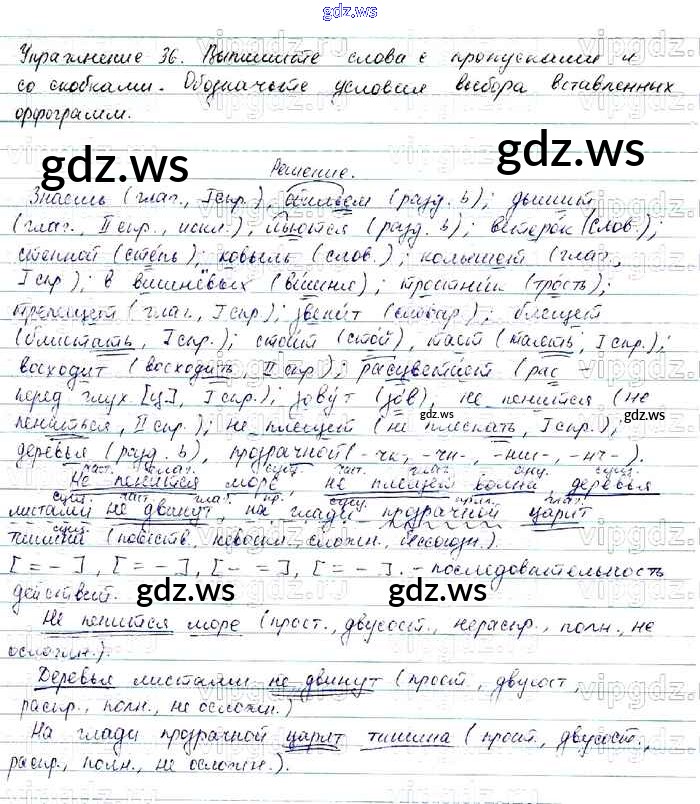 gdz.ws
Упражнение 36. Выпишите слова с пропусками и
со скобками. Обозначьте условия выбора вставленных
орфограмм.
Решение.
Знаешь (глаг., I спр.), (разд. ь); дышит
(глаг., II спр., искл.), льются (разд. ь); ветерок (слов.);
степной (степь); ковыль (слов.); колышет (глаг.,
I спр.); в вишнёвых (вишня); тростник (трость);
трепещет (глаг., I спр.); звенит (словар.); блещет
(блистать, I спр.); стоит (стой), тает (таять, I спр.);
восходит (восходить, II спр.); расцветает (рас -
перед глух [ц], I спр.); зовут (зов), не пенится (не
пениться, II спр.); не плещет (не плескать, I спр.);
деревья (разд. ь), прозрачной (-чк-, -чн-, -нщ-, -нч-).
част. глаг. сущ. част. глаг. сущ. сущ.
Не пенится море, не плещет волна, деревья
сущ. част. глаг. пр. сущ. прил. глаг.
листами не двинут, на глади прозрачной царит
сущ.
тишина (повеств., невоскл., сложн., бессоюзн.).
[= -], [= -], [- =], [= -]. - последовательность
действий.
Не пенится море (прост., двусост., нераспр., полн., не
осложн.).
Деревья листами не двинут (прост., двусост.,
распр., полн., не осложн.)
На глади прозрачной царит тишина (прост., двусост.,
распр., полн., не осложн.).
gdz.ws
gdz.ws
gdz.ws
gdz.ws
gdz.ws
gdz.ws